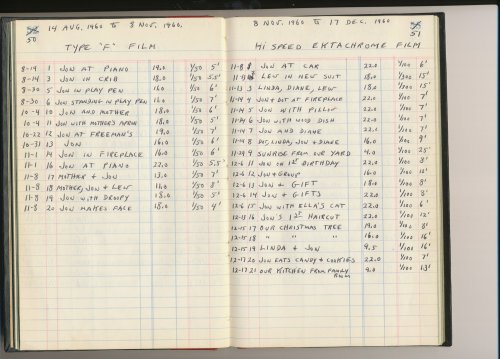 50
14 AUG, 1960 to 8 NOV, 1960.
TYPE "F" FILM
8-14 1 JON AT PIANO 19.0 1/50 5'
8-14 3 JON IN CRIB 18.0 1/50 5.5'
8-30 5 JON IN PLAY PEN 16.0 1/50 6'
8-30 6 JON STANDING IN PLAY PEN 16.0 1/50 6'
10-4 10 JON AND MOTHER 18.0 1/50 5'
10-4 11 JON WITH MOTHER'S APRON 18.0 1/50 5'
10-22 12 JON AT FREEMAN'S 19.0 1/50 7'
10-31 13 JON 16.0 1/50 6'
11-1 14 JON IN FIREPLACE 16.0 1/50 6'
11-1 16 JON AT PIANO 22.0 1/50 5.5'
11-8 17 MOTHER + JON 13.0 1/50 7'
11-8 18 MOTHER, JON + LEW 11.0 1/50 8'
11-8 19 JON WITH DROOPY 18.0 1/50 5'
11-8 20 JON MAKES FACE 18.0 1/50 4'
51
8 NOV, 1960 to 17 DEC, 1960
HI SPEED EKTACHROME FILM
11-8 JON AT CAR 22.0 1/100 6'
LEW IN NEW SUIT 18.0 15'
11-13 3 LINDA, DIANE, LEW 18.0 1/100 15'
11-14 4 JON + DOT AT FIREPLACE 22.0 1/100 7'
11-14 5 JON WITH PILLOW 22.0 1/100 7'
11-14 6 JON WITH WOOD DISH 22.0 1/100 7'
11-14 7 JON AND DIANE 22.0 1/100 7'
11-14 8 LINDA, JON + DIANE 16.0 9'
11-29 9 SUNROSE FROM OUR YARD 4.0 1/100 25'
12-6 11 JON ON 1ST BIRTHDAY 22.0 1/100 7'
12-6 12 JON + GROUP 16.0 1/100 12'
12-6 13 JON + GIFT 18.0 1/100 8'
12-6 14 JON + GIFTS 22.0 1/100 8'
12-6 15 JON WITH ELLA'S CAT 22.0 1/100 6'
12-13 16 JON'S 1ST HAIRCUT 22.0 1/100 12'
12-15 17 OUR CHRISTMAS TREE 19.0 1/100 8'
12-15 18 " " " 16.0 1/100 16'
12-15 19 LINDA + JON 9.5 1/100 16'
12-17 20 JON EATS CANDY + COOKIES 22.0 1/100 7'
12-17 21 OUR KITCHEN FROM FAMILY ROOM 9.0 1/100 13'